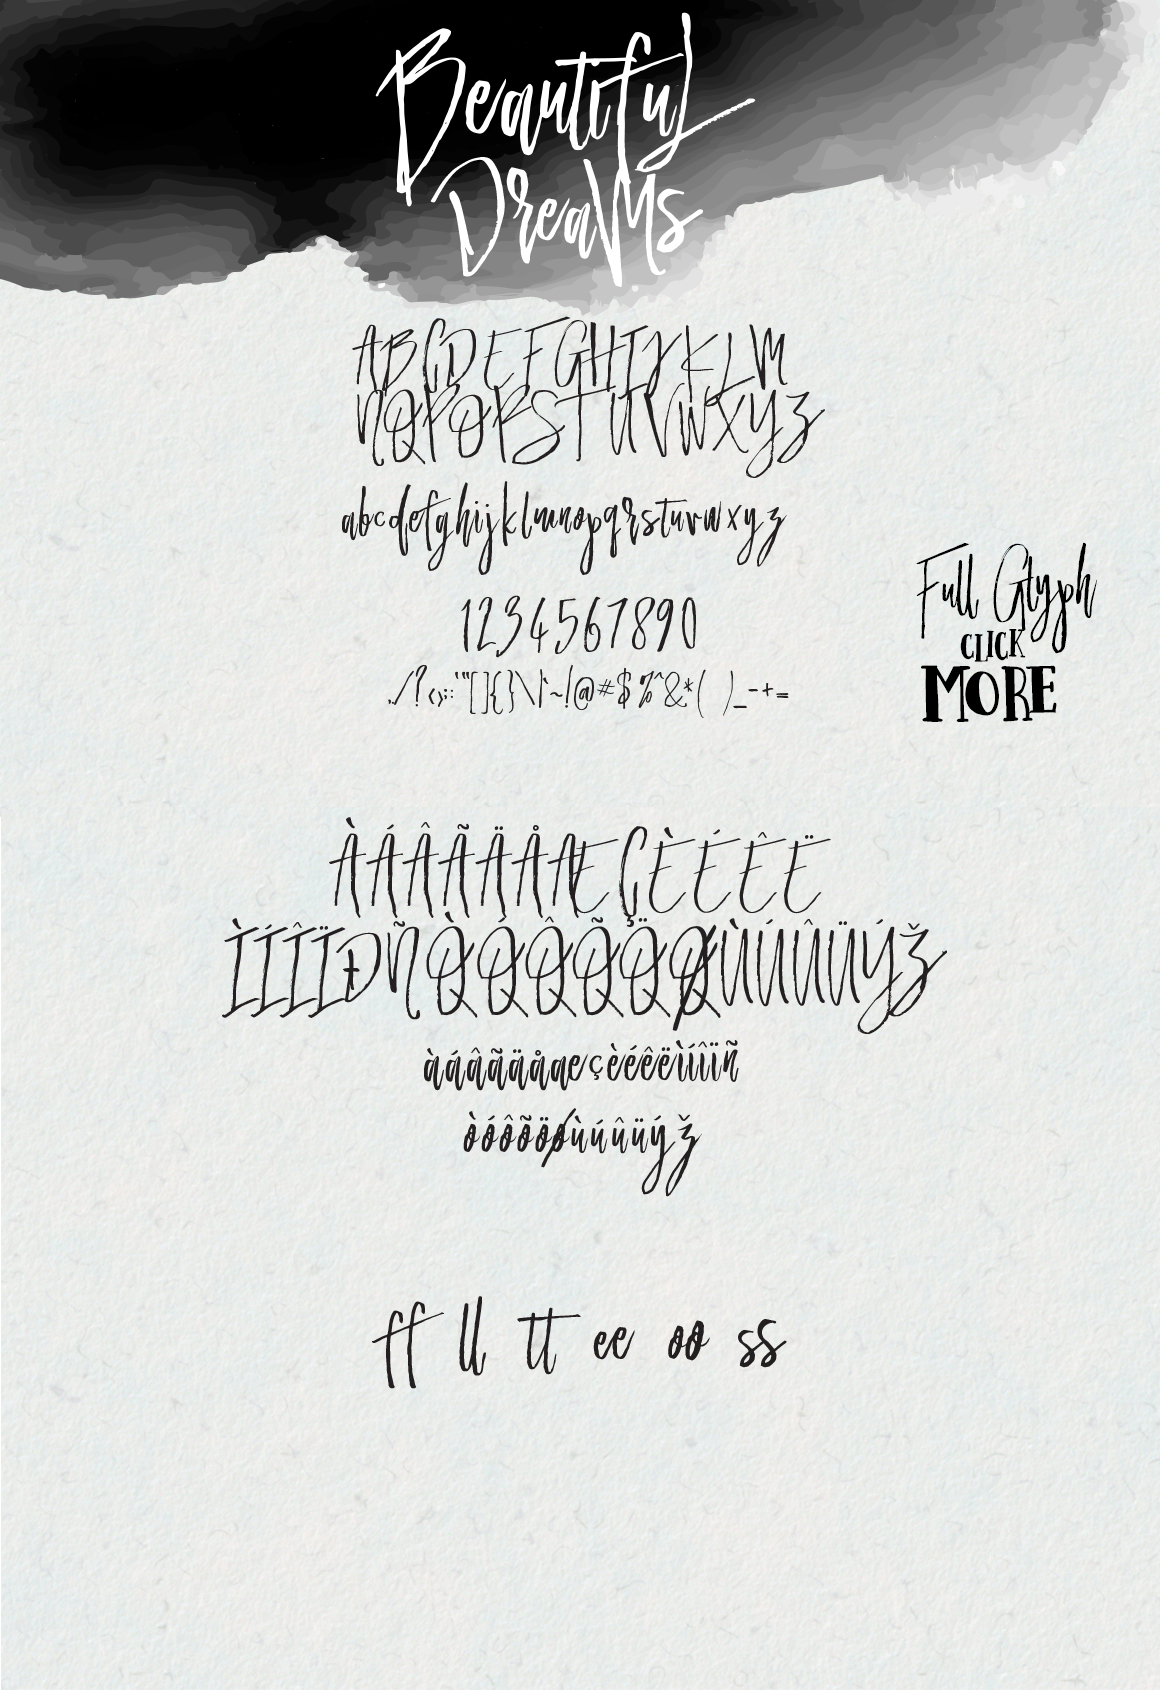 Beautiful
Dreams
ABCDEFGHIJKLM
NOPQRSTUVWXYZ
abcdefghijklmnopqrstuvwxyz
1234567890
Full Glyph
CLICK
MORE
ÀÁÂÃÄÅÆÇÈÉÊË
ÌÍÎÏÐÑÒÓÔÕÖØÙÚÛÜÝŽ
àáâãäåæçèéêëìíîïñ
òóôõöøùúûüýž
ff ll tt ee oo ss